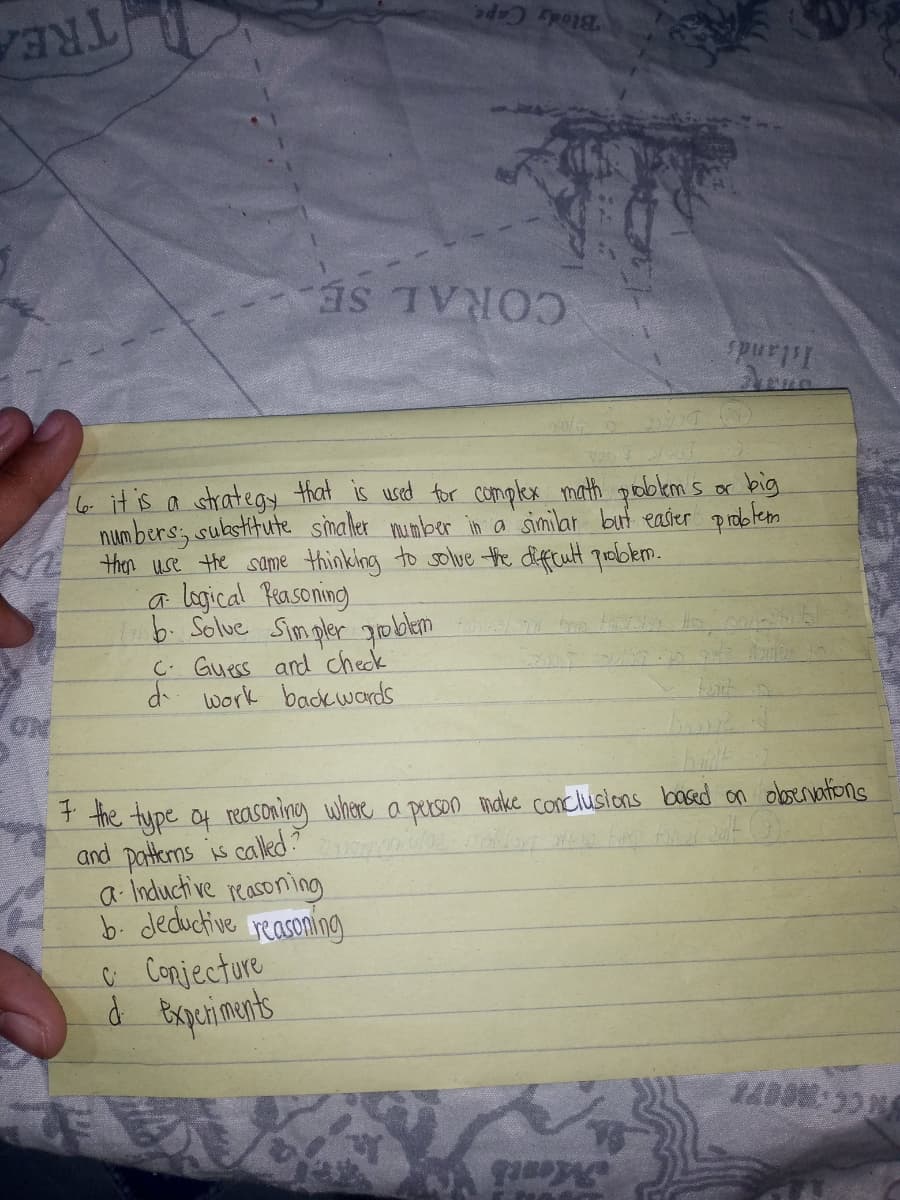 TREA
Blody Cape
CORAL SE
Islands
6. it is a strategy that is used for complex math problems or big
numbers; substitute smaller number in a similar but easier problem
then use the same thinking to solve the difficult problem.
a. logical Reasoning
b. Solve Simpler problem
c. Guess and check
d. work backwards
7. the type of reasoning where a person make conclusions based on observations
and patterns is called?
a. Inductive reasoning
b. deductive reasoning
c. Conjecture
d. Experiments